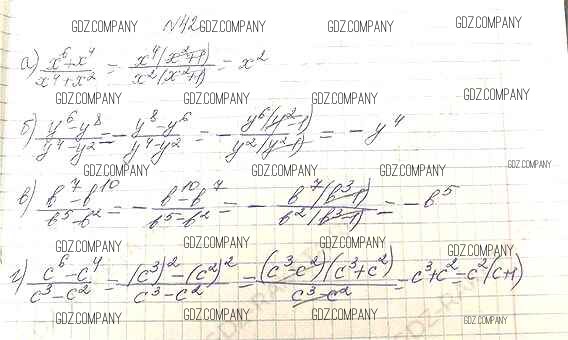 GDZ.COMPANY GDZ.COMPANY GDZ.COMPANY GDZ.COMPANY
№42
а) (x^6+x^4)/(x^4+x^2) = x^4(x^2+1)/x^2(x^2+1) = x^2
GDZ.COMPANY GDZ.COMPANY GDZ.COMPANY GDZ.COMPANY
б) (y^6-y^8)/(y^4-y^2) = -(y^8-y^6)/(y^4-y^2) = -y^6(y^2-1)/y^2(y^2-1) = -y^4
GDZ.COMPANY GDZ.COMPANY GDZ.COMPANY GDZ.COMPANY
в) (b^7-b^10)/(b^5-b^2) = -(b^10-b^7)/(b^5-b^2) = -b^7(b^3-1)/b^2(b^3-1) = -b^5
GDZ.COMPANY GDZ.COMPANY GDZ.COMPANY GDZ.COMPANY
г) (c^6-c^4)/(c^3-c^2) = ((c^3)^2-(c^2)^2)/(c^3-c^2) = (c^3-c^2)(c^3+c^2)/(c^3-c^2) = c^3+c^2=c^2(c+1)
GDZ.COMPANY GDZ.COMPANY GDZ.COMPANY GDZ.COMPANY